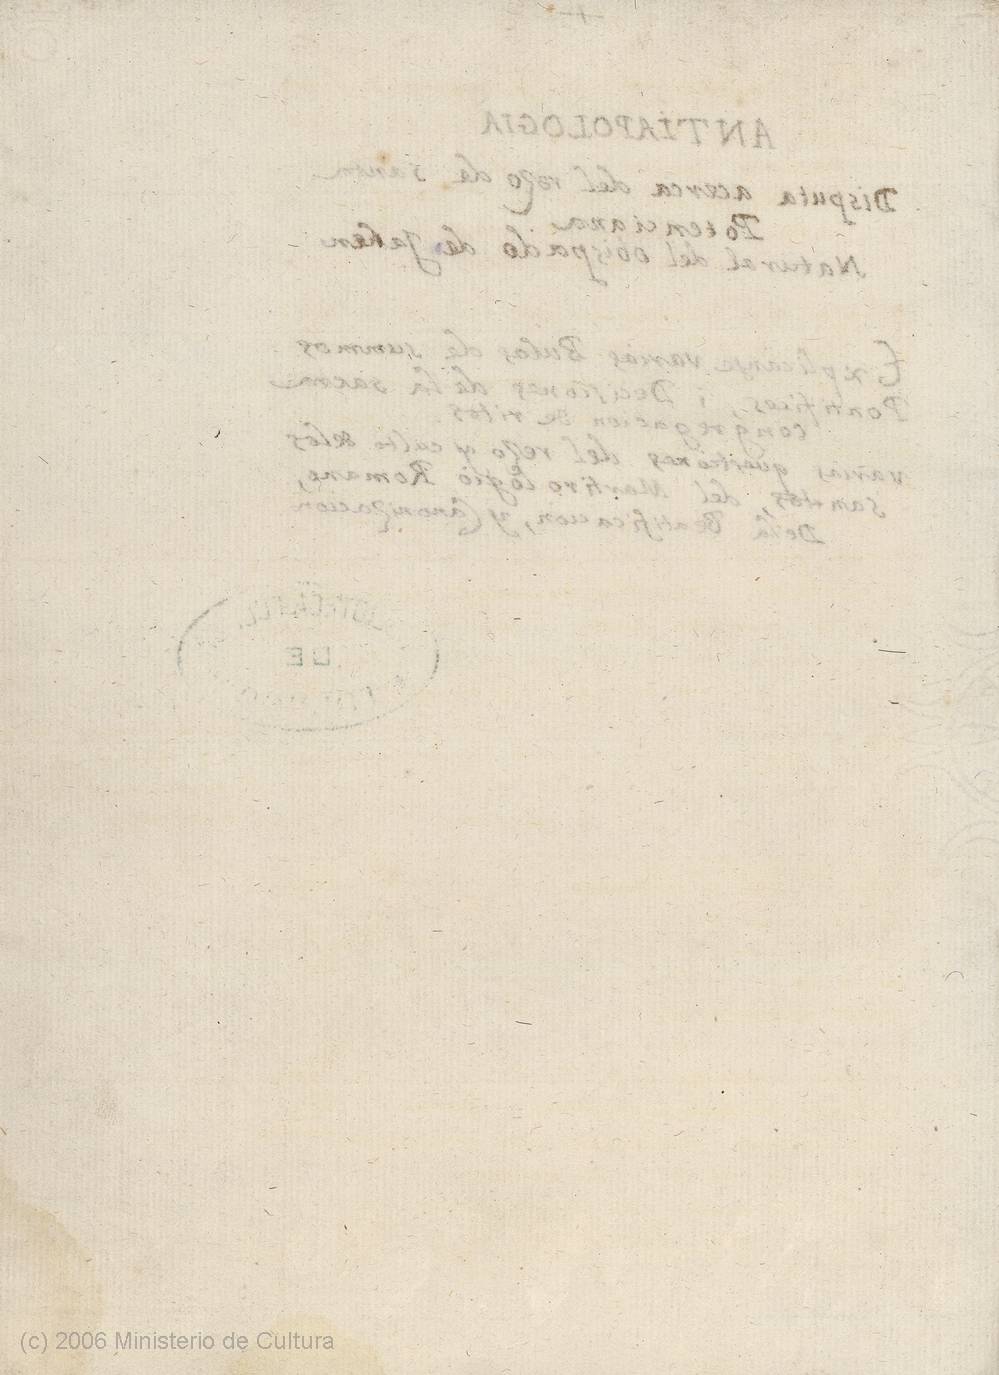 ANTIAPOLOGIA
Disputa acerca del rezo de santa
Potenciana
Natural del obispado de Jahen
Explicanse varias Bulas de summos
Pontifices, i Decisiones de la sacra
congregacion de ritos.
varias questiones del rezo y culto de los
santos, del Martirologio Romano,
De la Beatificacion, y Canonizacion
DE
(c) 2006 Ministerio de Cultura